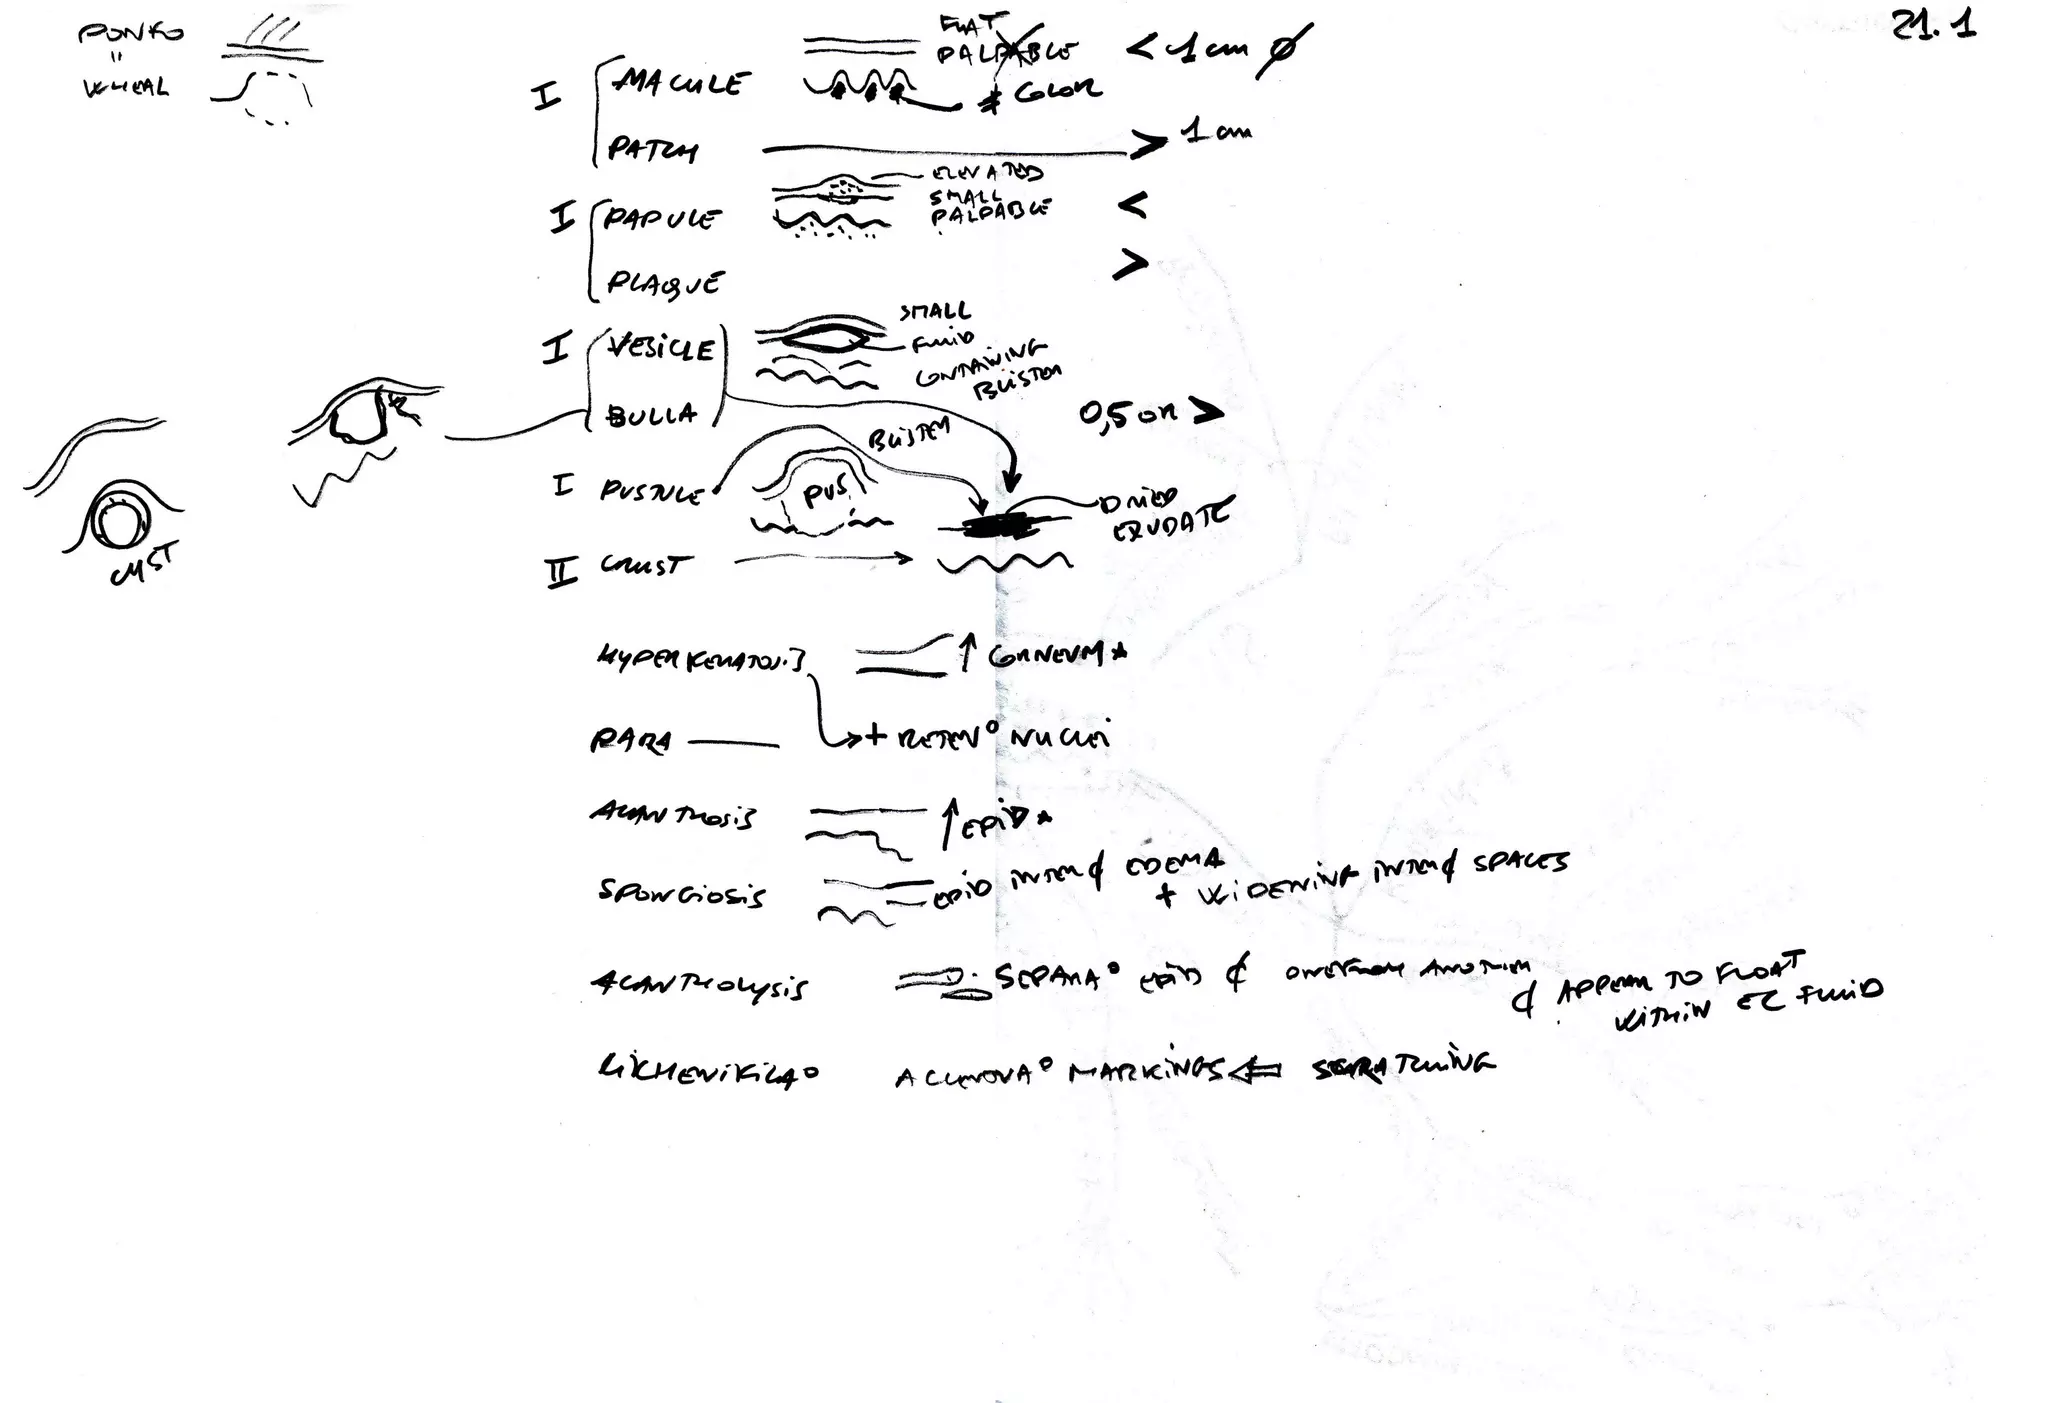 21.1
PONFO
"
WHEAL
I MACULE
FLAT
PALPABLE < 1 cm ø
≠ COLOR
PATCH > 1 cm
I PAPULE
ELEVATED
SMALL
PALPABLE <
PLAQUE >
I VESICLE
SMALL
FLUID
CONTAINING
BLISTER
BULLA
0,5 OR >
BLISTER
I PUSTULE
PUS
DRIED
EXUDATE
II CRUST
CYST
HYPERKERATOSIS ↑ CORNEUM
PARA — → + RETEN° NUCLEI
ACANTHOSIS ↑ EPID
SPONGIOSIS EPID INTER¢ EDEMA
+ WIDENING INTER¢ SPACES
ACANTHOLYSIS SEPARA° EPID ¢ ONE FROM ANOTHER
¢ APPEAR TO FLOAT
WITHIN EC FLUID
LICHENIFICA° ACCENTUA° MARKINGS ⇐ SCRATCHING